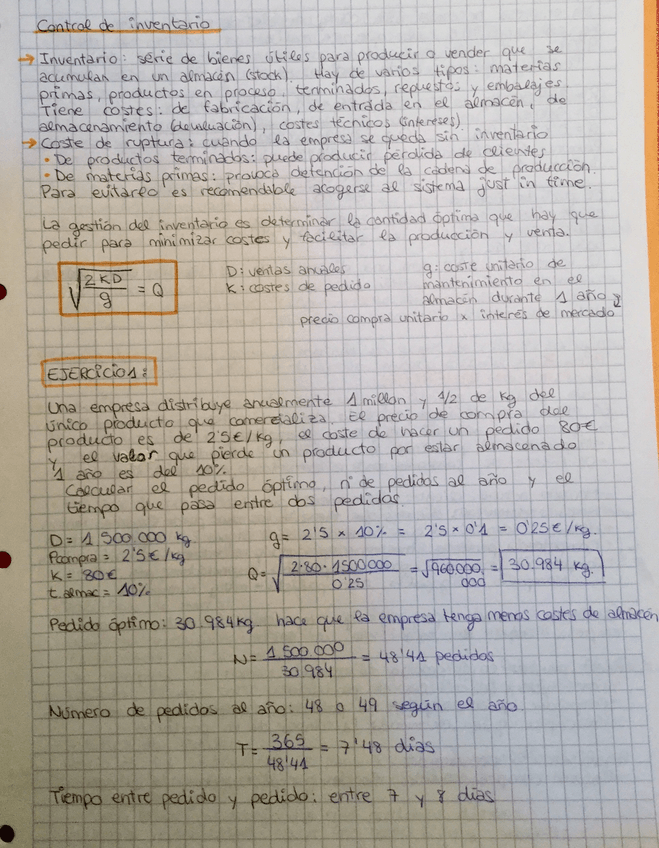 Control de inventario
→ Inventario: serie de bienes útiles para producir o vender que se
acumulan en un almacén (stock). Hay de varios tipos: materias
primas, productos en proceso, terminados, repuestos y embalajes.
Tiene costes: de fabricación, de entrada en el almacén, de
almacenamiento (devaluación), costes técnicos (intereses).
→ Coste de ruptura: cuando la empresa se queda sin inventario
• De productos terminados: puede producir pérdida de clientes
• De materias primas: provoca detención de la cadena de producción.
Para evitarlo es recomendable acogerse al sistema just in time.
La gestión del inventario es determinar la cantidad óptima que hay que
pedir para minimizar costes y facilitar la producción y venta.
√(2KD/g) = Q
D: ventas anuales
K: costes de pedido
g: coste unitario de
mantenimiento en el
almacén durante 1 año
precio compra unitario x interés de mercado
EJERCICIO 1:
Una empresa distribuye anualmente 1 millón y 1/2 de kg del
único producto que comercializa. El precio de compra del
producto es de 2'5€/kg, el coste de hacer un pedido 80€
y el valor que pierde un producto por estar almacenado
1 año es del 10%.
Calcular el pedido óptimo, nº de pedidos al año y el
tiempo que pasa entre dos pedidos.
D = 1 500.000 kg
Pcompra = 2'5€/kg
K = 80€
t.almac = 10%
g = 2'5 x 10% = 2'5 x 0'1 = 0'25€/kg.
Q = √(2·80·1500000/0'25) = √960000000 = 30.984 kg.
Pedido óptimo: 30.984kg hace que la empresa tenga menos costes de almacén
N = 1.500.000/30.984 = 48'41 pedidos
Número de pedidos al año: 48 o 49 según el año
T = 365/48'41 = 7'48 días
Tiempo entre pedido y pedido: entre 7 y 8 días